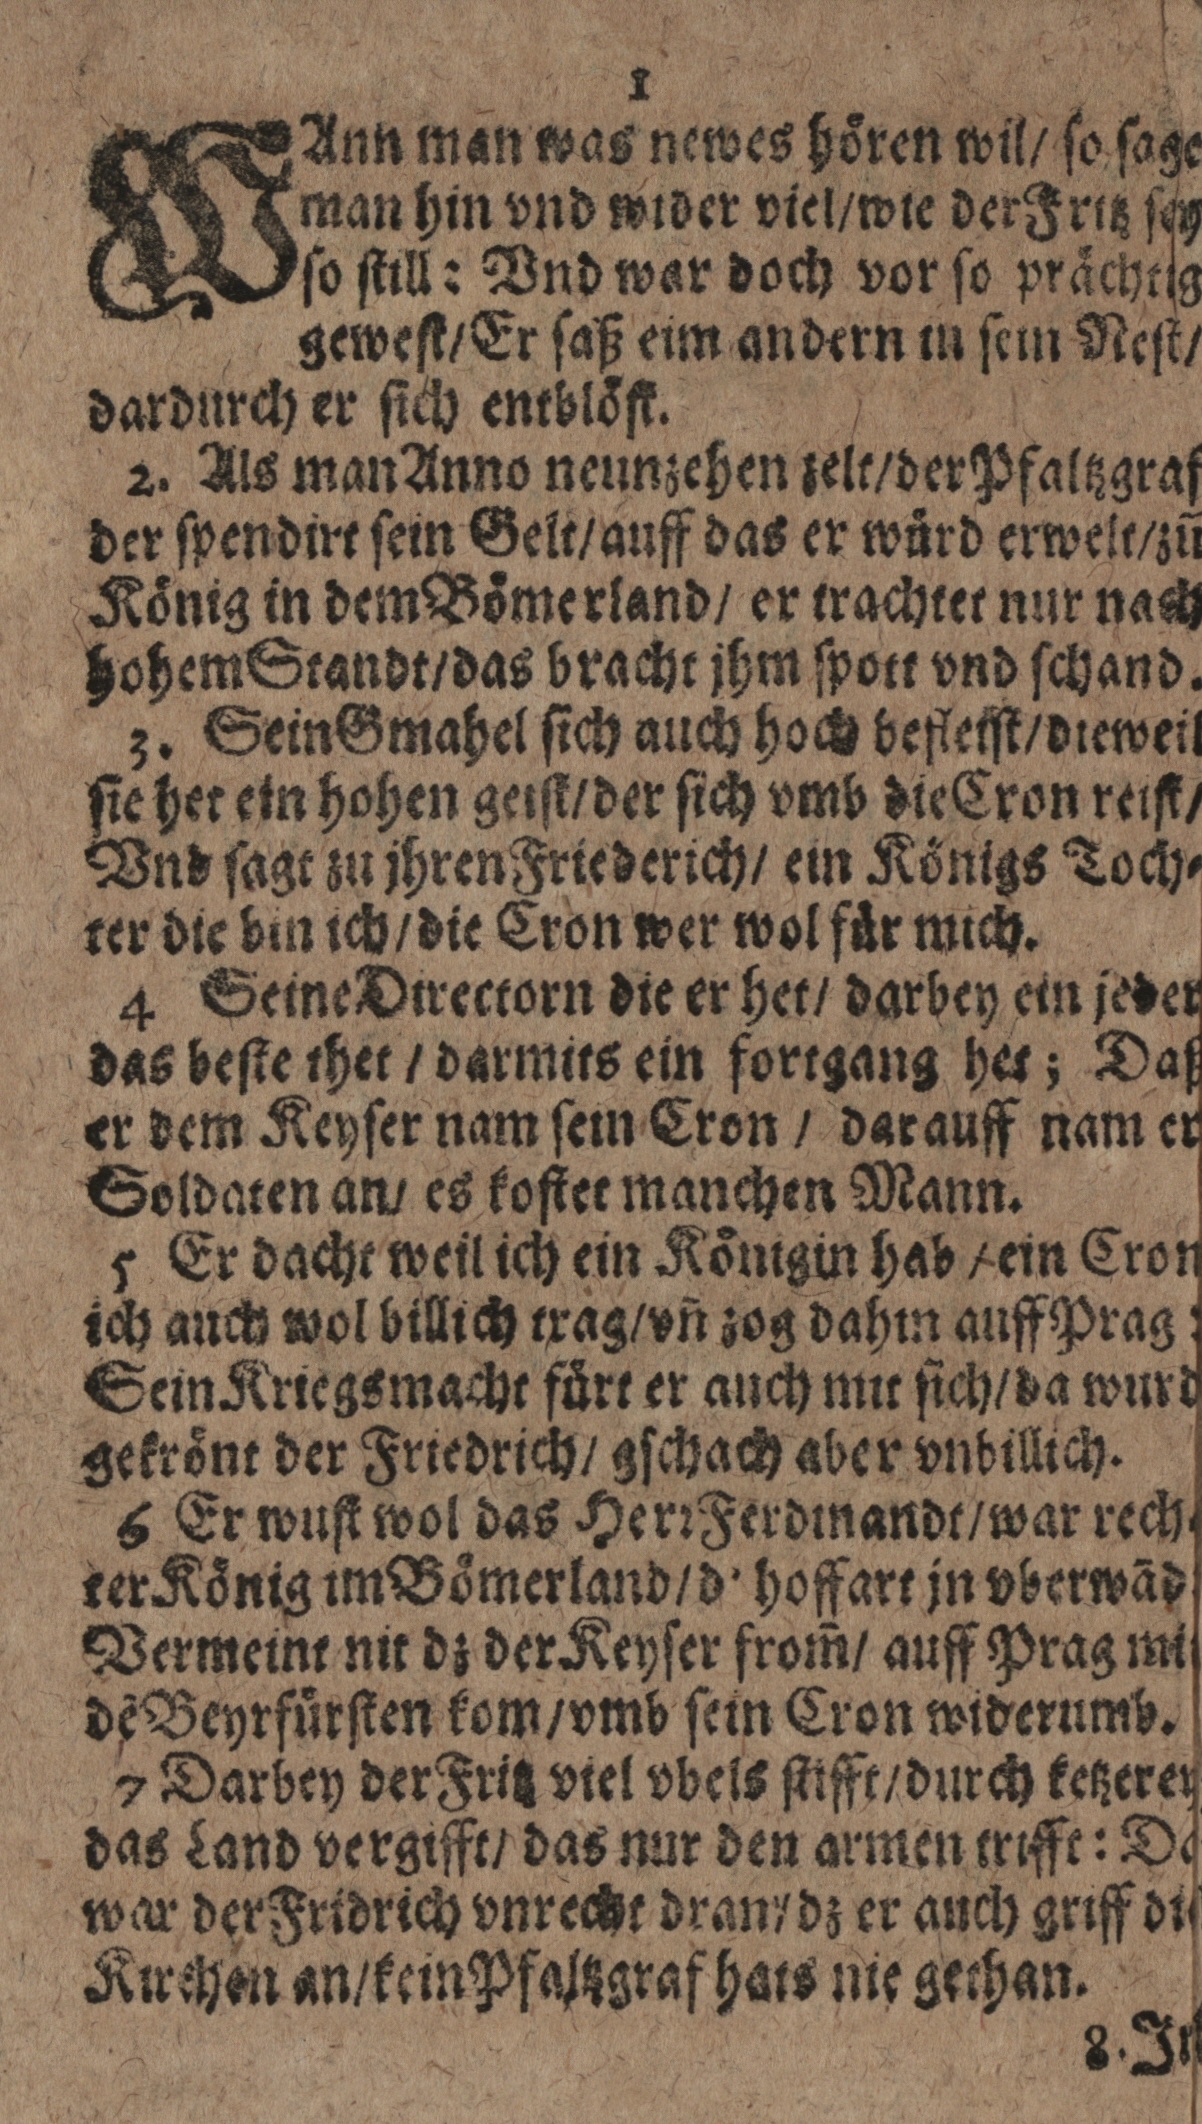 1
WAnn man was newes hören wil/ so sage
man hin vnd wider viel/wie der Fritz sey
so still: Vnd war doch vor so prächtig
gewest/Er saß eim andern in sein Nest/
dardurch er sich entblöst.
2. Als man Anno neunzehen zelt/der Pfaltzgraf
der spendirt sein Gelt/auff das er würd erwelt/zū
König in dem Bömerland/ er trachtet nur nach
hohem Standt/das bracht jhm spott vnd schand.
3. Sein Gmahel sich auch hoch befleist/dieweil
sie het ein hohen geist/der sich vmb die Cron reist/
Vnd sagt zu jhren Friederich/ ein Königs Toch-
ter die bin ich/die Cron wer wol für mich.
4 Seine Directorn die er het/ darbey ein jeder
das beste thet / darmits ein fortgang het; Daß
er dem Keyser nam sein Cron / darauff nam er
Soldaten an/ es kostet manchen Mann.
5 Er dacht weil ich ein Königin hab /ein Cron
ich auch wol billich trag/vñ zog dahin auff Prag :
Sein Kriegsmacht fürt er auch mit sich/da wurd
gekrönt der Friedrich/ gschach aber vnbillich.
6 Er wust wol das Herr Ferdinandt/war rech-
ter König im Bömerland/d' hoffart jn vberwād
Vermeint nit dz der Keyser from̄/ auff Prag mi
dē Beyrfürsten kom/vmb sein Cron widerumb.
7 Darbey der Fritz viel vbels stifft/durch ketzerey
das Land vergifft/ das nur den armen trifft: Da
war der Fridrich vnrecht dran/dz er auch griff die
Kirchen an/kein Pfaltzgraf hats nie gethan.
8.